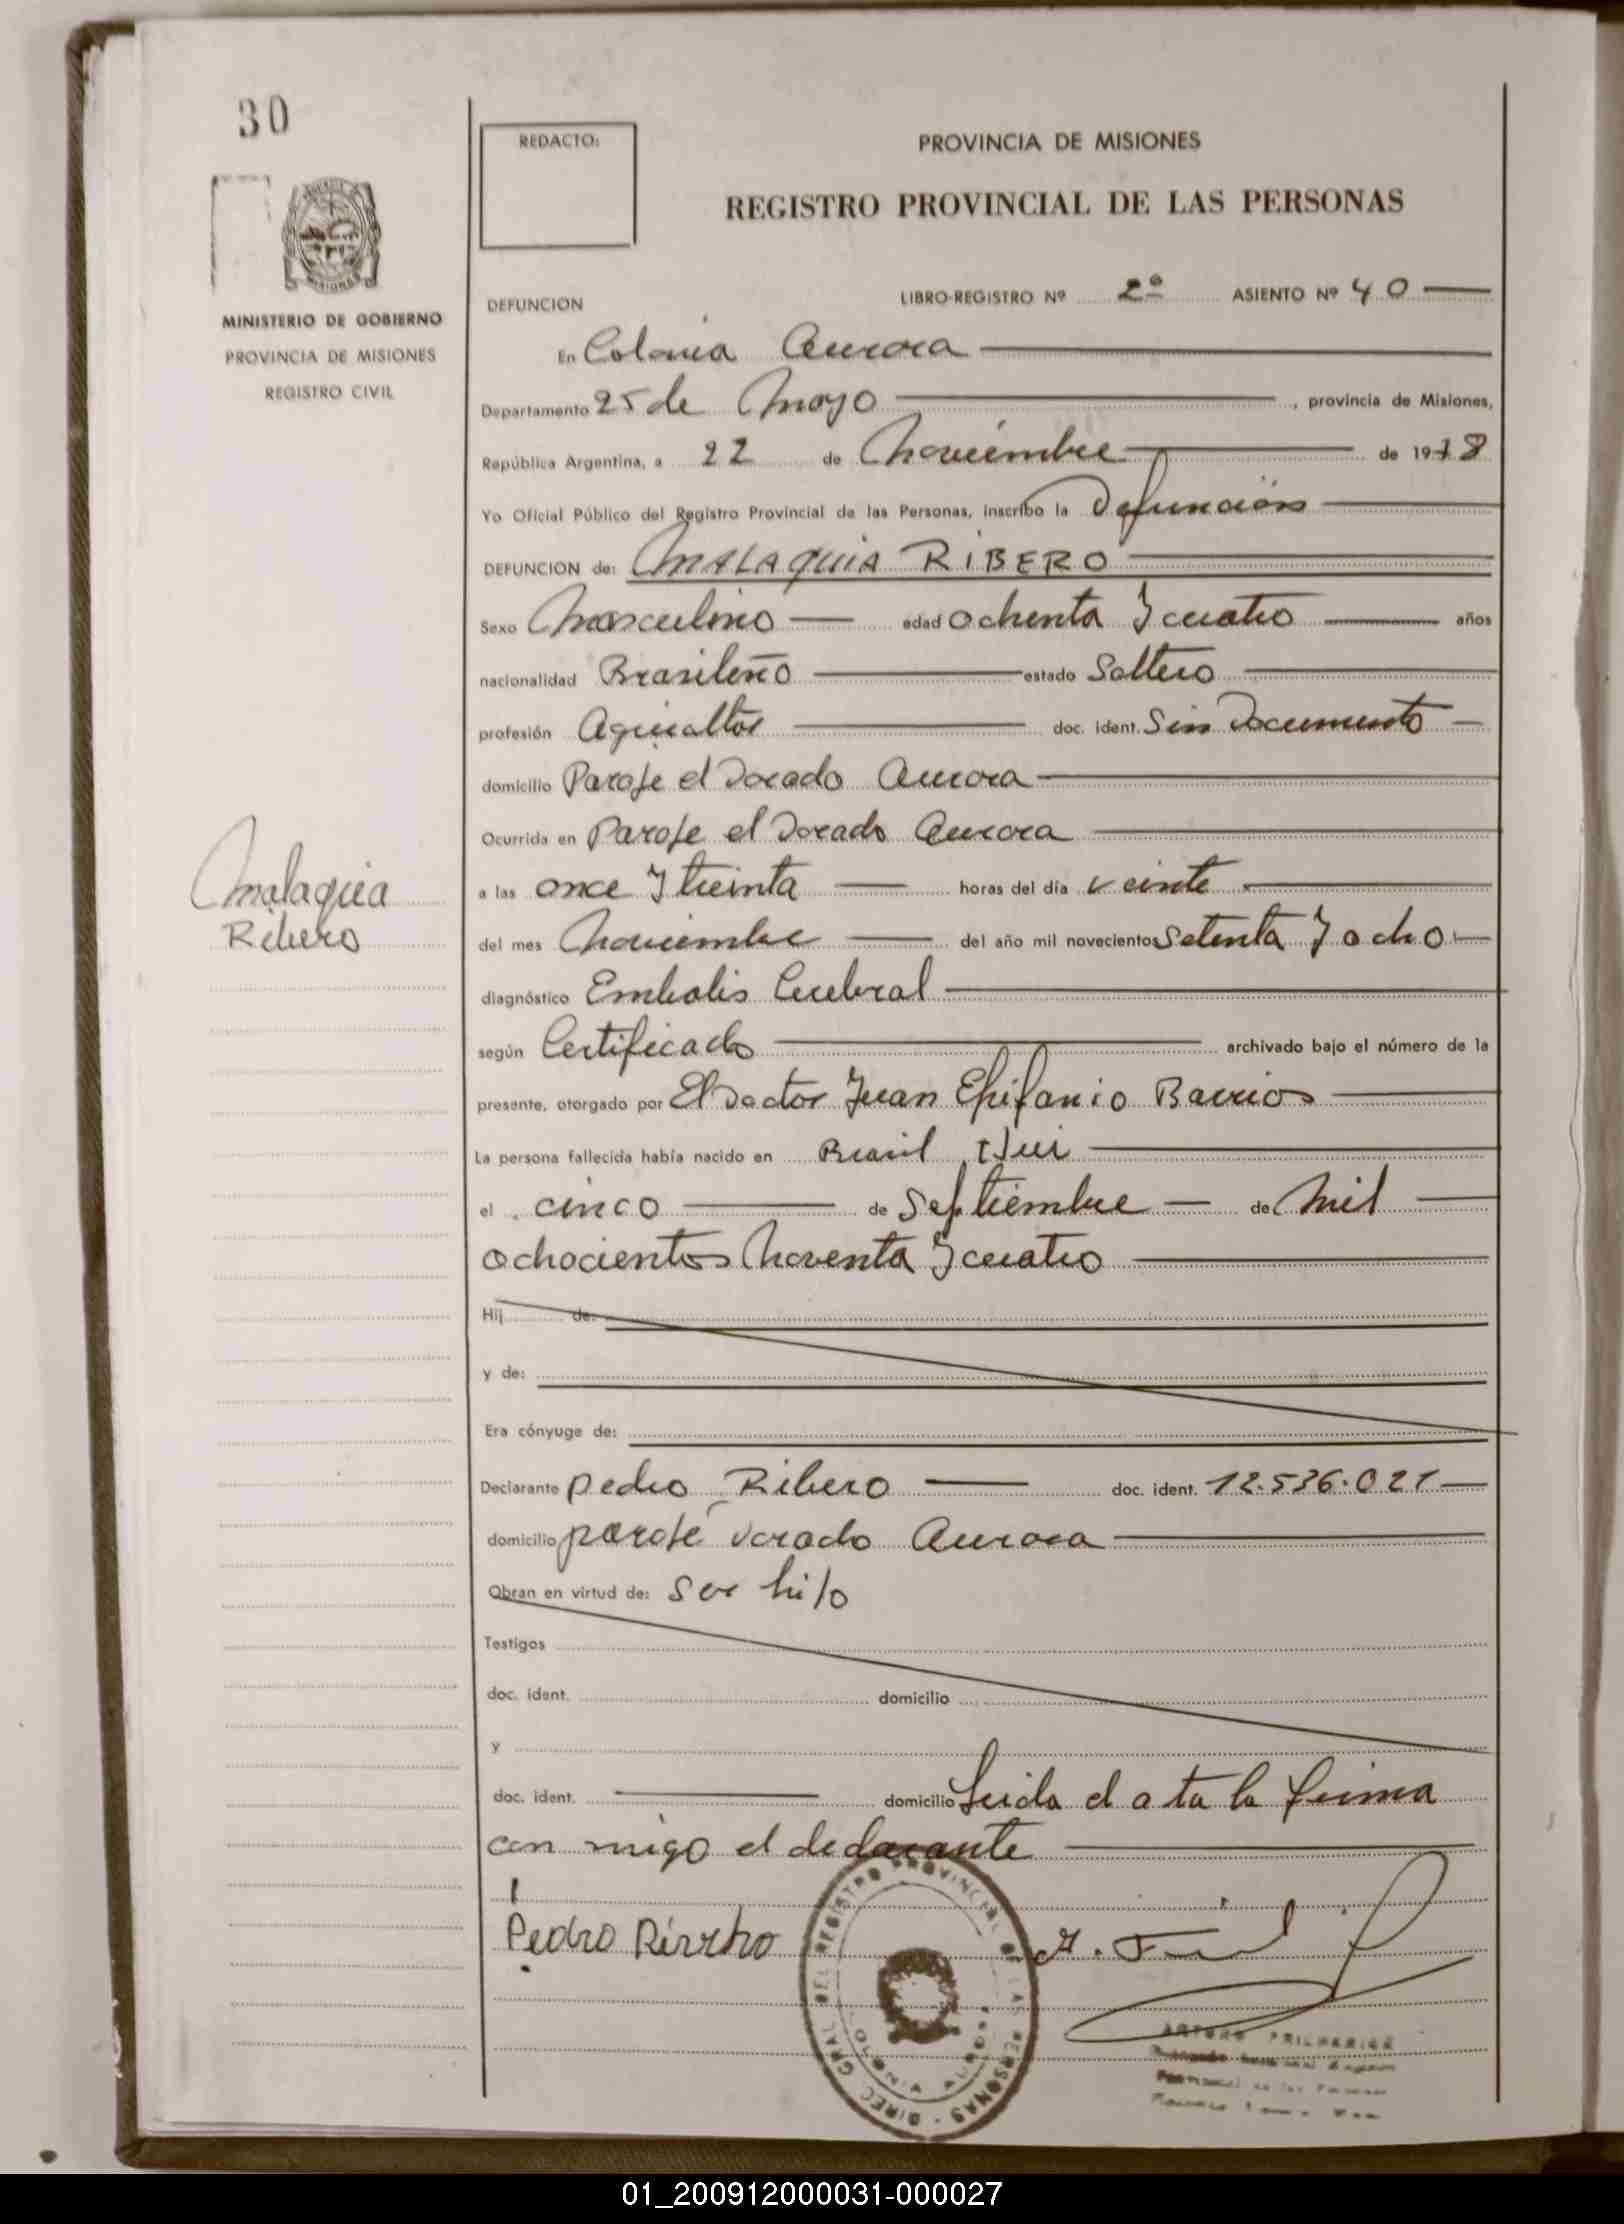 30
REDACTO:
PROVINCIA DE MISIONES
REGISTRO PROVINCIAL DE LAS PERSONAS
MISIONES
MINISTERIO DE GOBIERNO
PROVINCIA DE MISIONES
REGISTRO CIVIL
DEFUNCION LIBRO-REGISTRO Nº 2º ASIENTO Nº 40
En Colonia Aurora
Departamento 25 de Mayo, provincia de Misiones,
República Argentina, a 22 de Noviembre de 1978
Yo Oficial Público del Registro Provincial de las Personas, inscribo la Defunción
DEFUNCION de: MALAQUIA RIBERO
Sexo Masculino edad ochenta y cuatro años
nacionalidad Brasileño estado Soltero
profesión Agricultor doc. ident. Sin Documento
domicilio Paraje el Dorado Aurora
Ocurrida en Paraje el Dorado Aurora
Malaquia
Ribero
a las once y treinta horas del día veinte
del mes Noviembre del año mil novecientos setenta y ocho
diagnóstico Embolis Cerebral
según Certificado archivado bajo el número de la
presente, otorgado por El Doctor Juan Epifanio Barrios
La persona fallecida había nacido en Brasil
el cinco de Septiembre de Mil
ochocientos Noventa y cuatro
Hij de:
y de:
Era cónyuge de:
Declarante Pedro Ribero doc. ident. 12.536.021
domicilio paraje Dorado Aurora
Obran en virtud de: Ser hijo
Testigos
doc. ident. domicilio
y
doc. ident. domicilio Leida el ata la firma
con migo el declarante
Pedro
DIREC. GRAL. DEL REGISTRO PROVINCIAL DE LAS PERSONAS
COLONIA AURORA
ARTURO
01_200912000031-000027